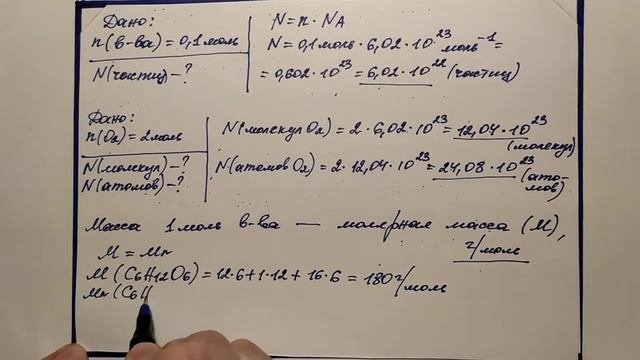 Дано:
n(в-ва)=0,1моль
N(частиц)-?
N=n·NA
N=0,1моль·6,02·10²³ моль⁻¹=
=0,602·10²³=6,02·10²² (частиц)
Дано:
n(O₂)=2моль
N(молекул)-?
N(атомов)-?
N(молекул O₂)=2·6,02·10²³=12,04·10²³
(молекул)
N(атомов O₂)=2·12,04·10²³=24,08·10²³ (ато-
мов)
Масса 1моль в-ва — молярная масса (M),
г/моль
M=Mr
M(C₆H₁₂O₆)=12·6+1·12+16·6=180г/моль
Mr(C₆H